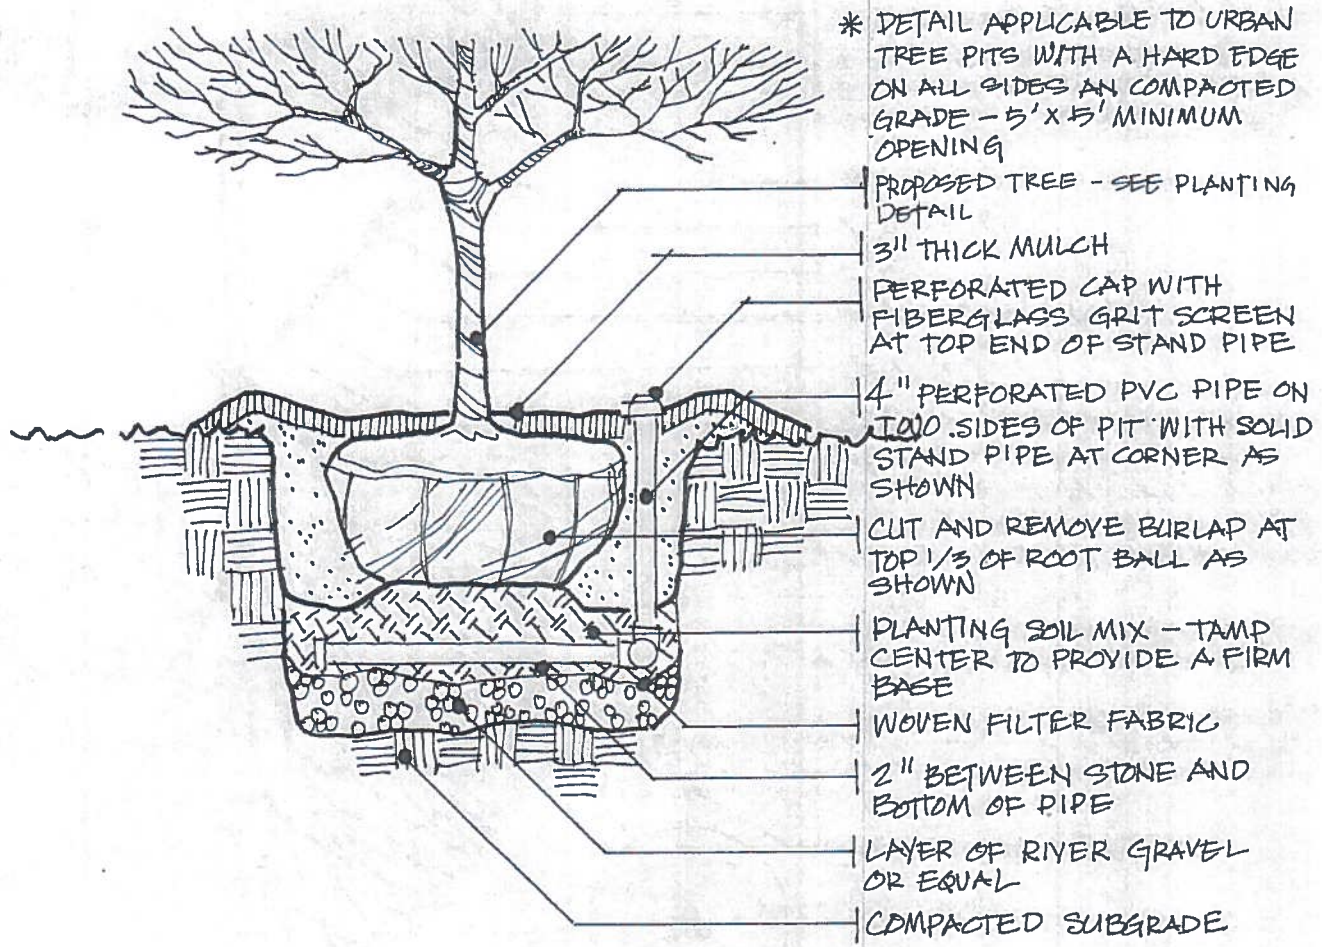 * DETAIL APPLICABLE TO URBAN
TREE PITS WITH A HARD EDGE
ON ALL SIDES AN COMPACTED
GRADE - 5' X 5' MINIMUM
OPENING
PROPOSED TREE - SEE PLANTING
DETAIL
3" THICK MULCH
PERFORATED CAP WITH
FIBERGLASS GRIT SCREEN
AT TOP END OF STAND PIPE
4" PERFORATED PVC PIPE ON
TWO SIDES OF PIT WITH SOLID
STAND PIPE AT CORNER AS
SHOWN
CUT AND REMOVE BURLAP AT
TOP 1/3 OF ROOT BALL AS
SHOWN
PLANTING SOIL MIX - TAMP
CENTER TO PROVIDE A FIRM
BASE
WOVEN FILTER FABRIC
2" BETWEEN STONE AND
BOTTOM OF PIPE
LAYER OF RIVER GRAVEL
OR EQUAL
COMPACTED SUBGRADE